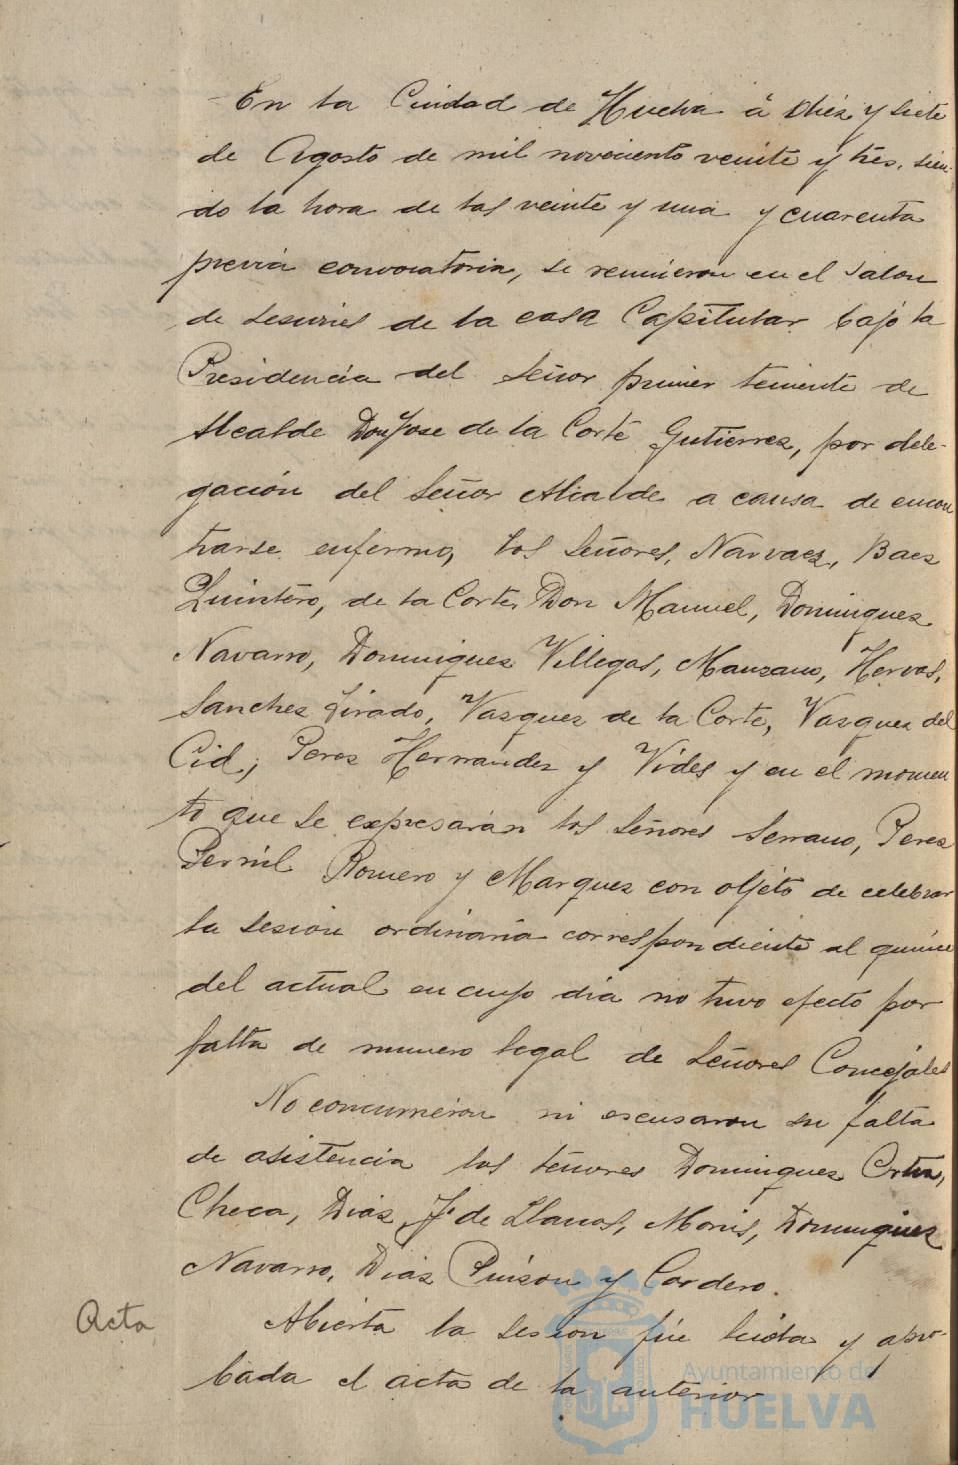 En la Ciudad de Huelva á diez y siete
de Agosto de mil noveciento veinte y tres, sien-
do la hora de las veinte y una y cuarenta
previa convocatoria, se reunieron en el salon
de sesiones de la casa Capitular bajo la
Presidencia del Señor primer teniente de
Alcalde Don Jose de la Corte Gutierrez, por dele-
gación del Señor Alcalde a causa de encon
trarse enfermo, los Señores, Narvaez, Baez
Quintero, de la Corte, Don Manuel, Dominguez
Navarro, Dominguez Villegas, Manzano, Hervas,
Sanchez Tirado, Vazquez de la Corte, Vazquez del
Cid, Perez Hernandez y Vides y en el momen
to que se expresarán los señores Serrano, Perez
Pernil Romero y Marquez con objeto de celebrar
la sesión ordinaria correspondiente al quince
del actual en cuyo dia no tuvo efecto por
falta de numero legal de Señores Concejales
No concurrieron ni escusaron su falta
de asistencia los señores Dominguez
Checa, Diaz, Jº de Llanos, Moris, Dominguez
Navarro, Diaz Pinzon y Cordero.
Acta
Abierta la sesion fue leida y apro-
bada el acta de la anterior
Ayuntamiento de
HUELVA